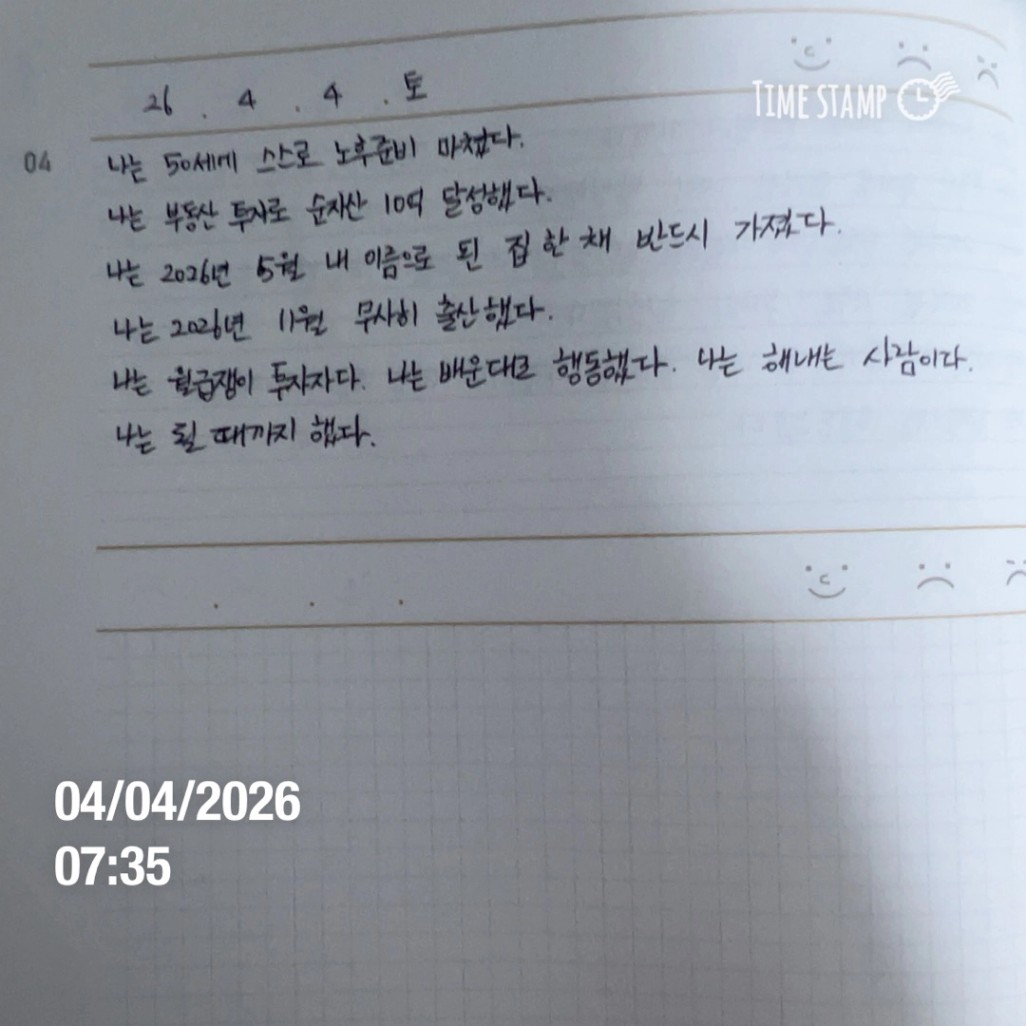 TIME STAMP
26 . 4 . 4 . 토
04
나는 50세에 스스로 노후준비 마쳤다.
나는 부동산 투자로 순자산 10억 달성했다.
나는 2026년 5월 내 이름으로 된 집 한 채 반드시 가졌다.
나는 2026년 11월 무사히 출산했다.
나는 월급쟁이 투자자다. 나는 배운대로 행동했다. 나는 해내는 사람이다.
나는 될 때까지 했다.
04/04/2026
07:35